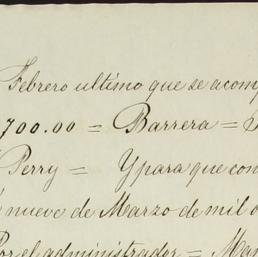 Febrero ultimo que se acomp
700.00 = Barrera =
Perry = Ypara que con
nueve de Marzo de mil o
Por el administrador = Man